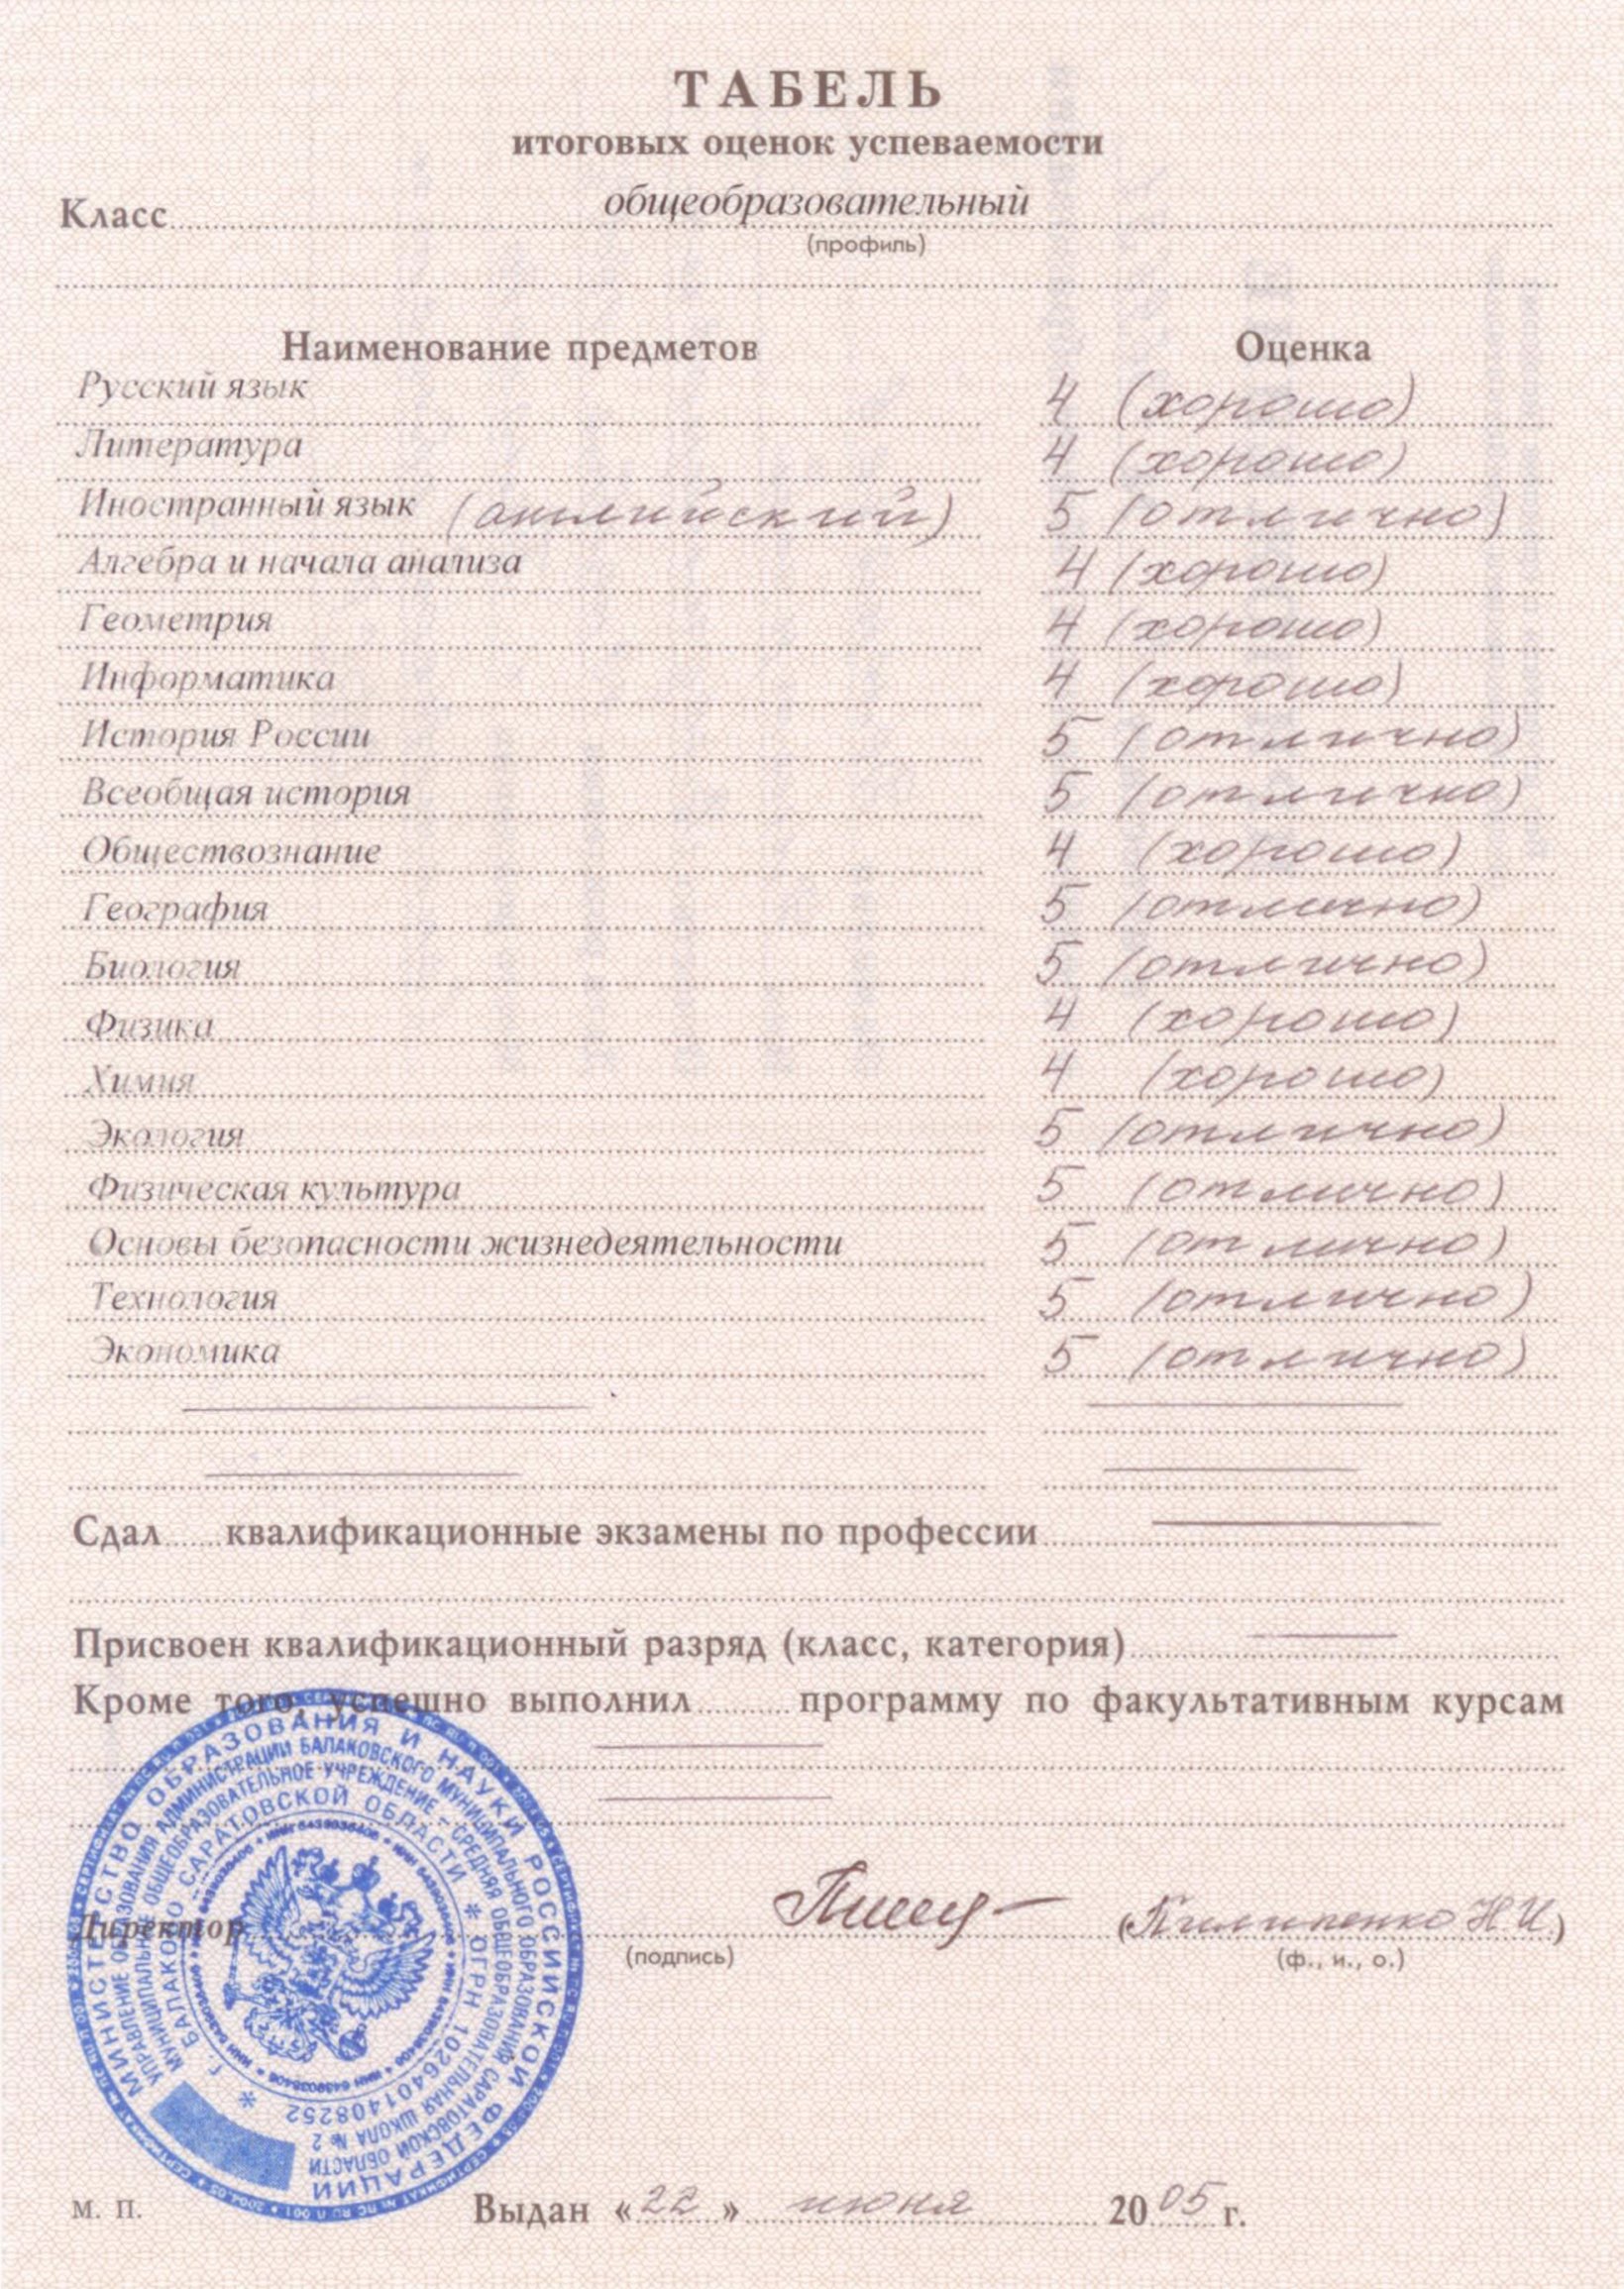 ТАБЕЛЬ
итоговых оценок успеваемости
Класс общеобразовательный
(профиль)
Наименование предметов Оценка
Русский язык 4 (хорошо)
Литература 4 (хорошо)
Иностранный язык (английский) 5 (отлично)
Алгебра и начала анализа 4 (хорошо)
Геометрия 4 (хорошо)
Информатика 4 (хорошо)
История России 5 (отлично)
Всеобщая история 5 (отлично)
Обществознание 4 (хорошо)
География 5 (отлично)
Биология 5 (отлично)
Физика 4 (хорошо)
Химия 4 (хорошо)
Экология 5 (отлично)
Физическая культура 5 (отлично)
Основы безопасности жизнедеятельности 5 (отлично)
Технология 5 (отлично)
Экономика 5 (отлично)
Сдал квалификационные экзамены по профессии
Присвоен квалификационный разряд (класс, категория)
Кроме того, успешно выполнил программу по факультативным курсам
МИНИСТЕРСТВО ОБРАЗОВАНИЯ И НАУКИ РОССИЙСКОЙ ФЕДЕРАЦИИ
УПРАВЛЕНИЕ ОБРАЗОВАНИЯ АДМИНИСТРАЦИИ БАЛАКОВСКОГО МУНИЦИПАЛЬНОГО ОБРАЗОВАНИЯ САРАТОВСКОЙ ОБЛАСТИ
МУНИЦИПАЛЬНОЕ ОБЩЕОБРАЗОВАТЕЛЬНОЕ УЧРЕЖДЕНИЕ – СРЕДНЯЯ ОБЩЕОБРАЗОВАТЕЛЬНАЯ ШКОЛА № 2
г. БАЛАКОВО САРАТОВСКОЙ ОБЛАСТИ * ОГРН 1026401408252 *
Директор (Пилипенко Н.И.)
(подпись) (ф., и., о.)
М. П. Выдан «22» июня 2005 г.